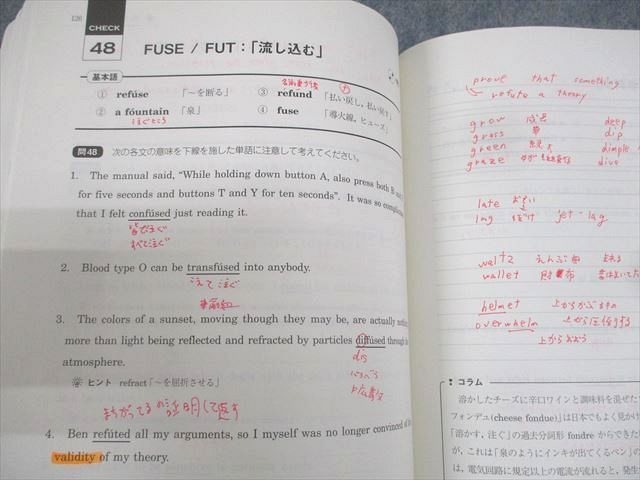 126
CHECK
48
FUSE / FUT:「流し込む」
基本語
① refúse 「~を断る」
③ refund 「払い戻し, 払い戻す」
② a fóuntain 「泉」
④ fuse 「導火線, ヒューズ」
注ぐところ
問48 次の各文の意味を下線を施した単語に注意して考えてください。
1. The manual said, "While holding down button A, also press both B and
for five seconds and buttons T and Y for ten seconds". It was so
that I felt confúsed just reading it.
皆で注ぐ
すべて注ぐ
2. Blood type O can be transfúsed into anybody.
こえて注ぐ
3. The colors of a sunset, moving though they may be, are actually
more than light being reflected and refracted by particles diffúsed through
atmosphere.
dis
ヒント refract「~を屈折させる」
まちがってるの証明して返す
4. Ben refúted all my arguments, so I myself was no longer convinced of
validity of my theory.
prove that something
refute a theory
grow 成長 deep
grass 草 dip
green 緑 dimple
graze dive
late おそい
lag jet-lag
waltz
wallet 財布
helmet 上からかぶるもの
overwhelm 上から圧倒する
コラム
溶かしたチーズに辛口ワインと調味料を混ぜた
フォンデュ(cheese fondue)」は日本でもよく見か
「溶かす, 注ぐ」の過去分詞形 fondre からできた
が、これは「泉のようにインキが出てくるペン」の
は、電気回路に規定以上の電流が流れると、発